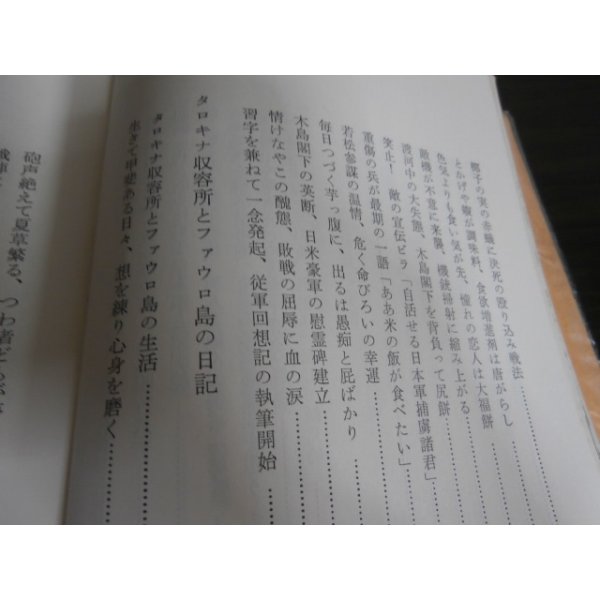 椰子の実の赤蟻に決死の殴り込み戦法
とかげや蠍が調味料、食欲増進剤は唐がらし
色気よりも食い気が先、憧れの恋人は大福餅
敵機が不意に来襲、機銃掃射に縮み上がる
渡河中の大失態、木島閣下を背負って尻餅
笑止！敵の宣伝ビラ「自活せる日本軍捕虜諸君」
重傷の兵が最期の一語「ああ米の飯が食べたい」
若松参謀の温情、危く命びろいの幸運
毎日つづく芋っ腹に、出るは愚痴と屁ばかり
木島閣下の英断、日米豪軍の慰霊碑建立
情けなやこの醜態、敗戦の屈辱に血の涙
習字を兼ねて一念発起、従軍回想記の執筆開始
タロキナ収容所とファウロ島の日記
タロキナ収容所とファウロ島の生活
生きて甲斐ある日々、想を練り心身を磨く
砲声絶えて夏草繁る、つわ者ど